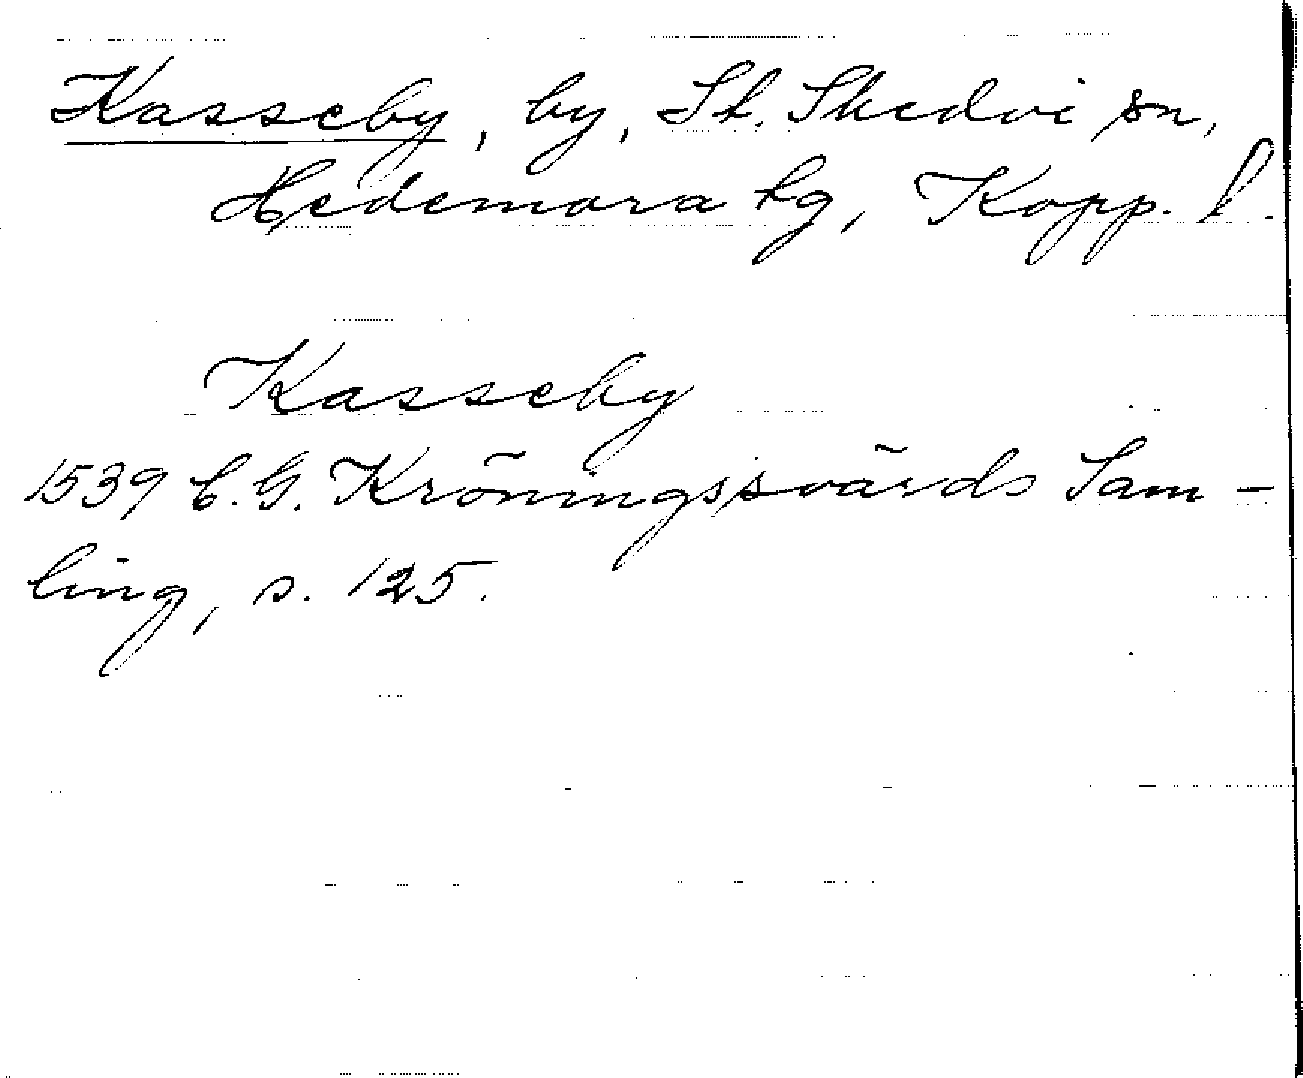 Kasseby, by, St. Skedvi sn,
Hedemora tg, Kopp. l.
Kasseby
1539 C. G. Kröningssvärds Sam-
ling, s. 125.